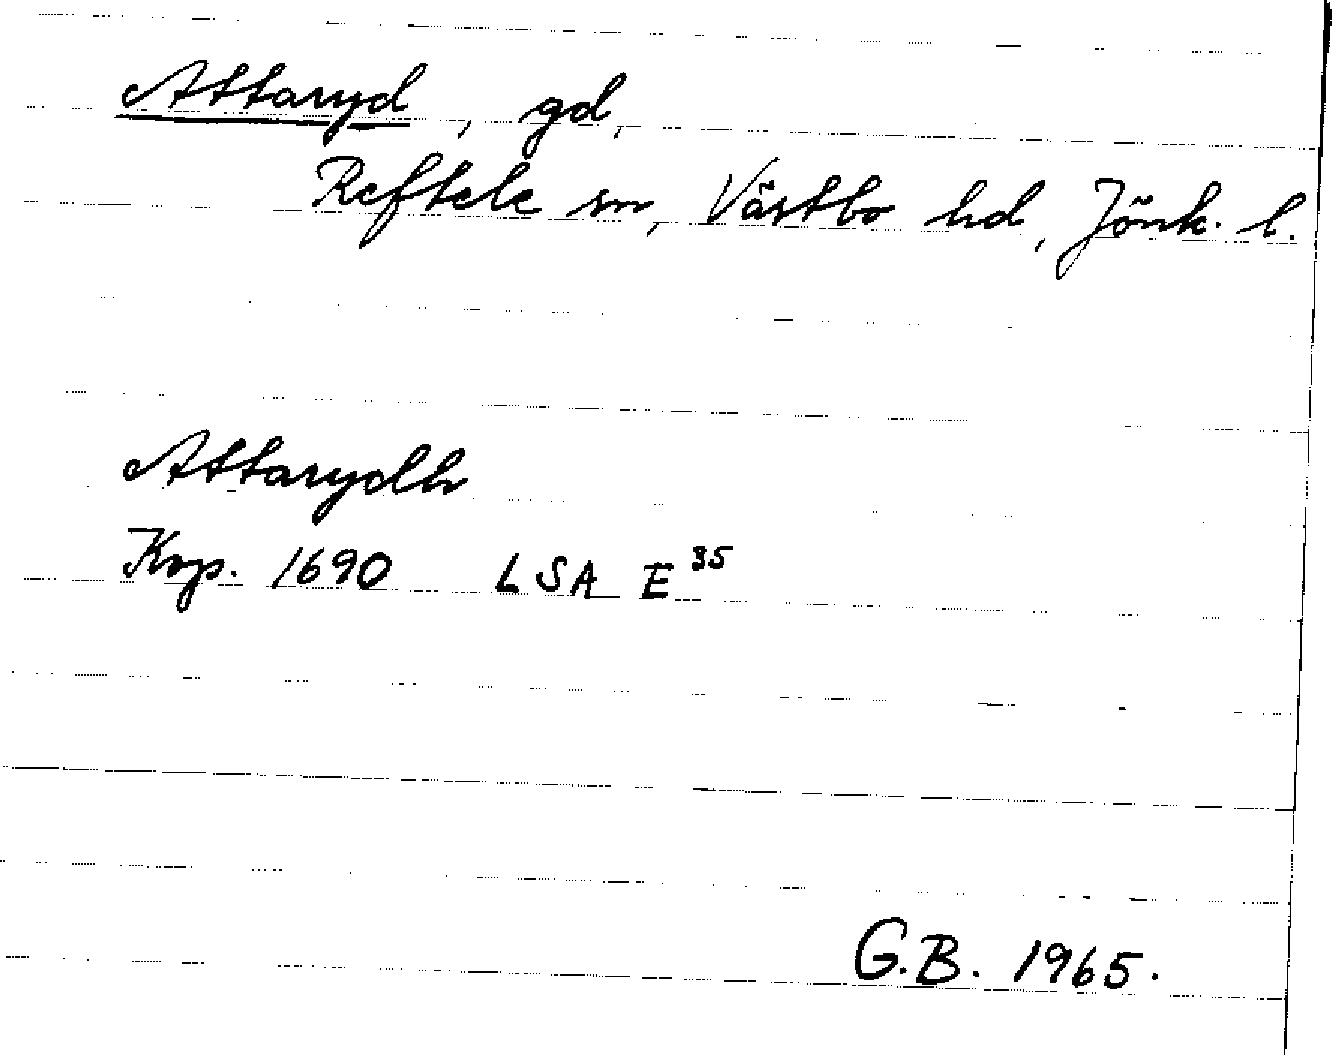 Attaryd, gd,
Reftele sn, Västbo hd, Jönk. l.
Attarydh
Krp. 1690 LSA E 35
G.B. 1965.